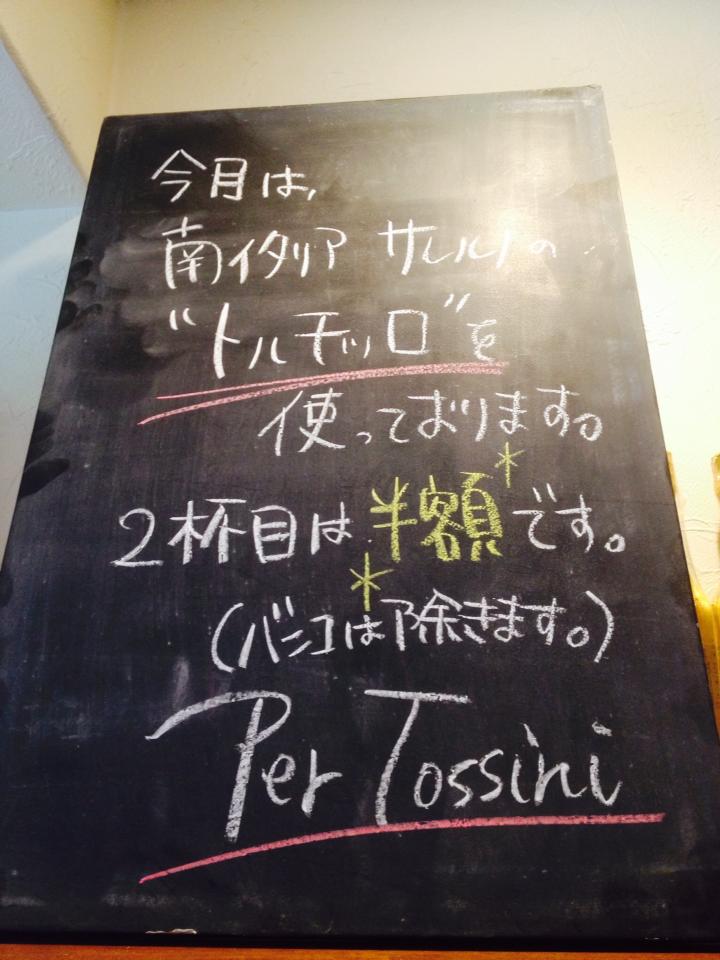 今月は、
南イタリア サレルノの
"トルチッロ"を
使っております。
2杯目は半額です。
(バンコは除きます。)
Per Tossini